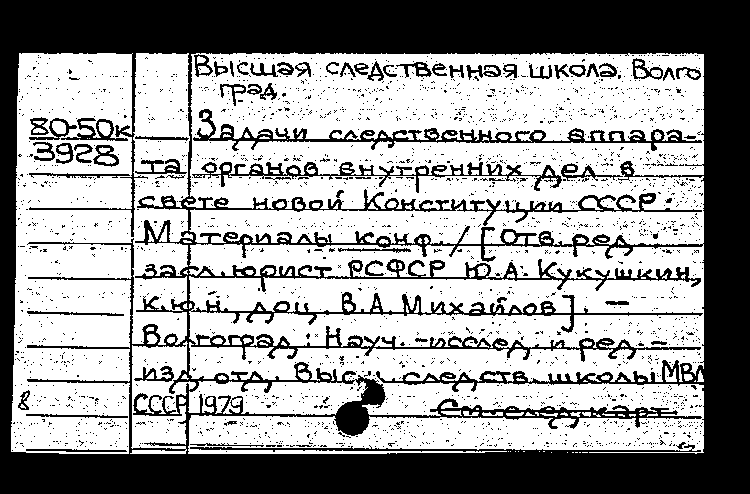 Высшая следственная школа. Волго
град.
80-50к
3928
Задачи следственного аппара-
та органов внутренних дел в
свете новой Конституции СССР:
Материалы конф. / [Отв. ред.:
засл. юрист РСФСР Ю.А. Кукушкин,
к.ю.н., доц. В.А. Михайлов]. —
Волгоград: Науч.-исслед. и ред.-
изд. отд. Высш. следств. школы МВД
8
СССР, 1979.
См. след. карт